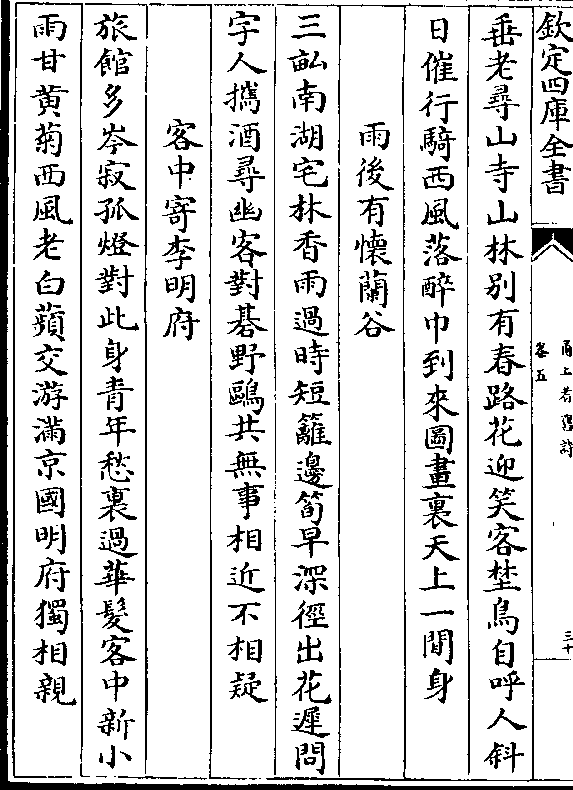 欽定四庫全書
甬上耆舊詩
卷五
三十
垂老尋山寺山林别有春路花迎笑客埜鳥自呼人斜
日催行騎西風落醉巾到來圖畫裏天上一閒身
雨後有懷蘭谷
三畝南湖宅林香雨過時短籬邊筍早深徑出花遲問
字人攜酒尋幽客對碁野鷗共無事相近不相疑
客中寄李明府
旅館多岑寂孤燈對此身青年愁裏過華髮客中新小
雨甘黄菊西風老白蘋交游滿京國明府獨相親